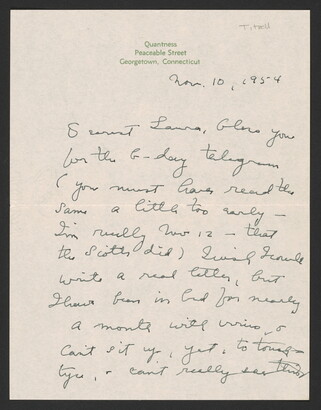 Quantness
Peaceable Street
Georgetown, Connecticut
Nov. 10, 1954
Dearest Laura, Bless you
for the b-day telegram
(you must have read the
same a little too early –
I'm really Nov 12 – that
the Scotts did) I wish I could
write a real letter, but
I have been in bed for nearly
a month with virus, &
can't sit up, yet, to
type, & can't really see